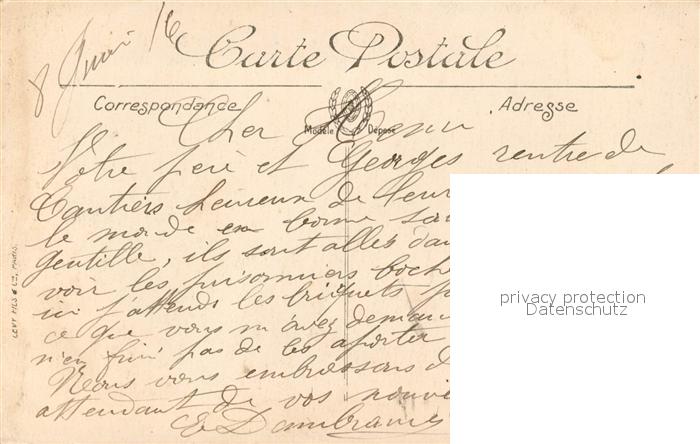 8 Juin 16
Carte Postale
Correspondance
Adresse
Modèle Déposé
Cher
Votre père et Georges rentre de
heureux de leur
le monde en bonne
gentille, ils sont allés
voir les prisonniers boche
ici j'attends les briquets
ce que vous m'avez deman
pas de les apporter
Nous vous embrassons
attendant de vos nouve
LEVY FILS & Cie, PARIS.
privacy protection
Datenschutz